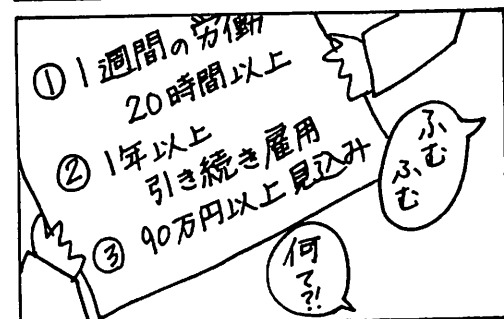 ①1週間の労働
20時間以上
②1年以上
引き続き雇用
③90万円以上見込み
ふむ
ふむ
何て?!